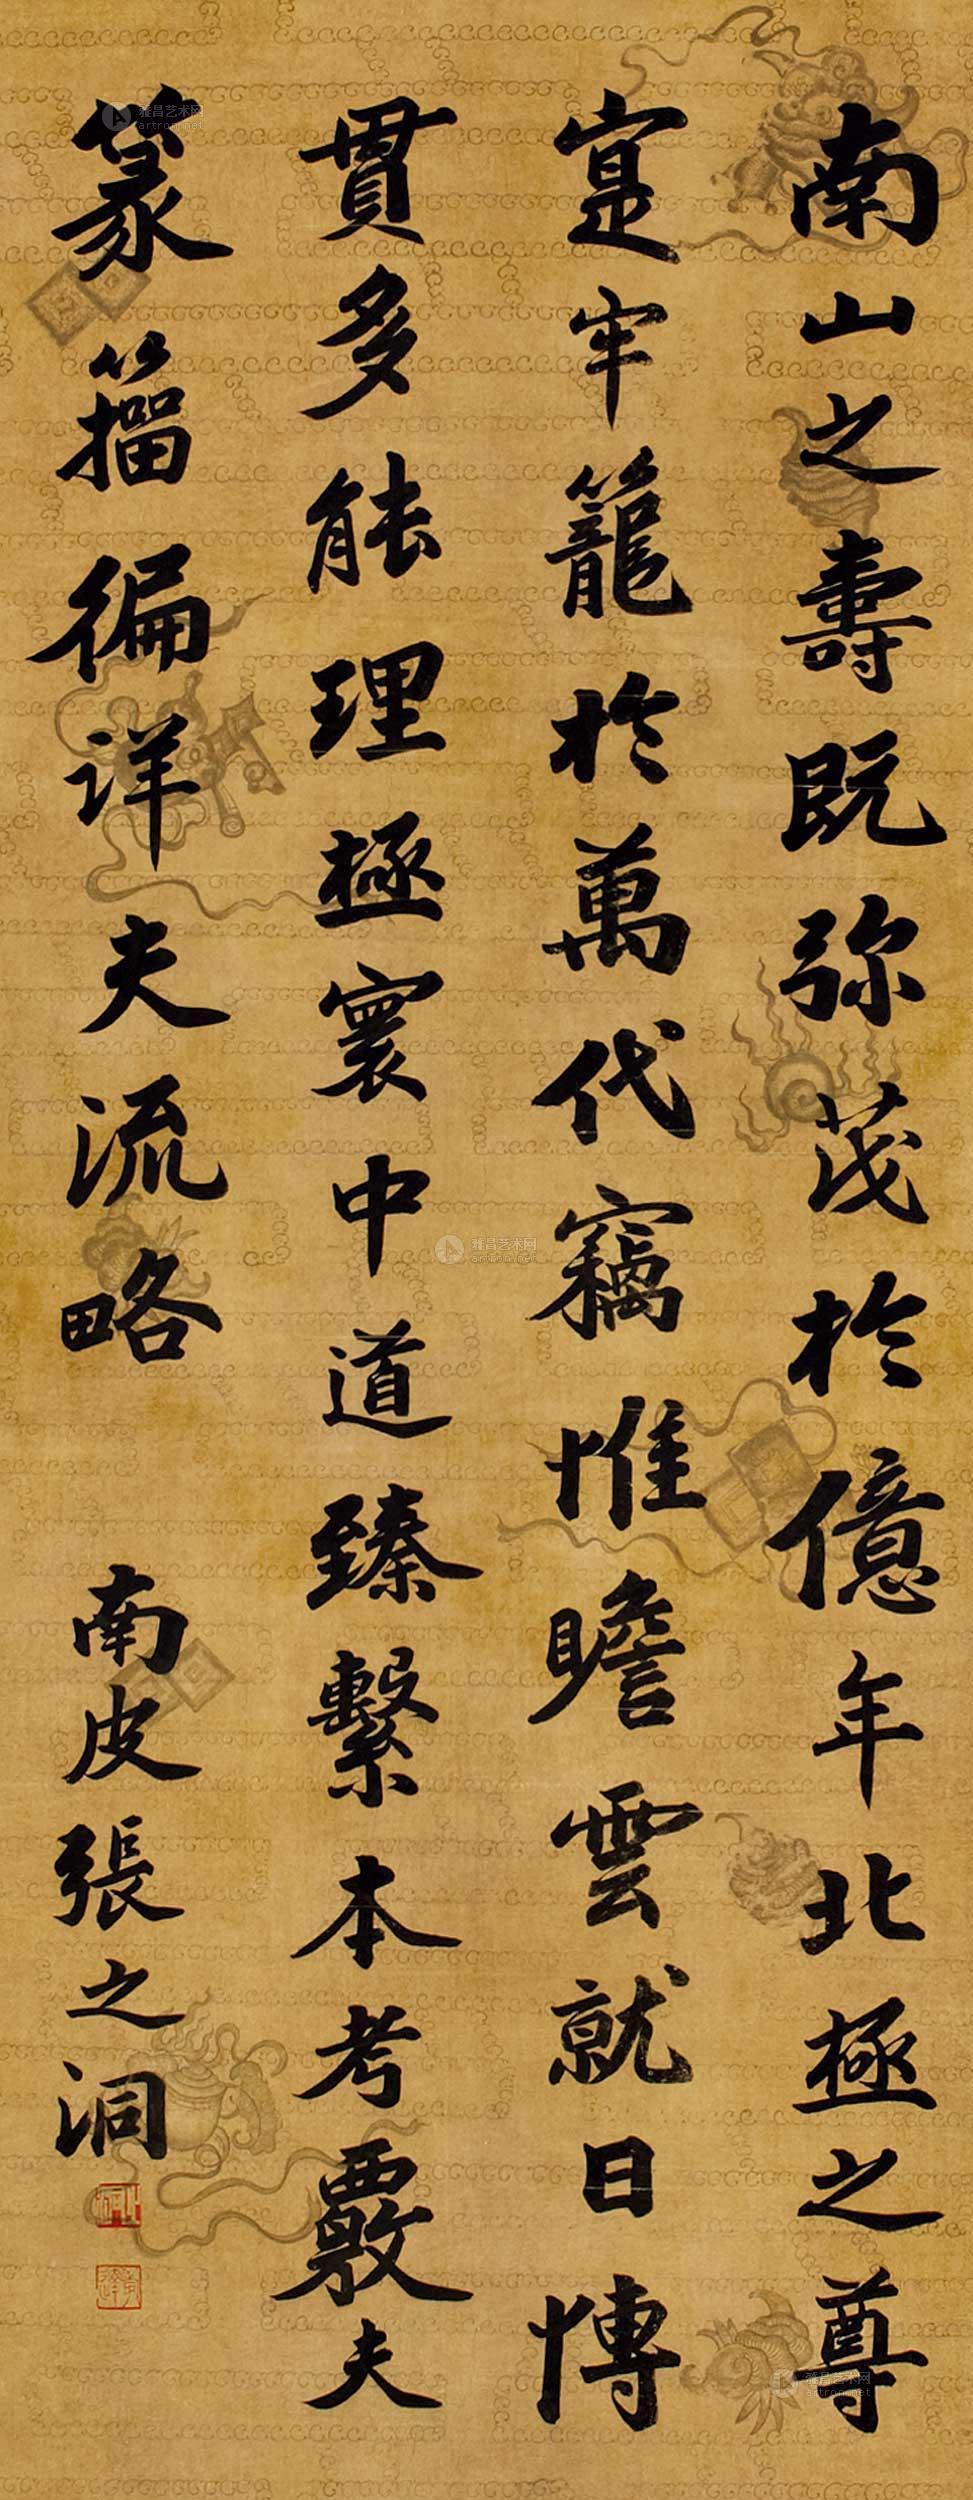 南山之壽既弥茂於億年北極之尊
寔牢籠於萬代竊惟瞻雲就日博
貫多能理極寰中道臻繫本考覈夫
篆籀徧详夫流略
南皮張之洞
雅昌艺术网
artron.net
雅昌艺术网
artron.net
雅昌艺术网
artron.net